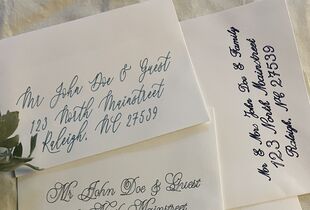 Mr John Doe & Guest
123 North Mainstreet
Raleigh, NC 27539
Mr & Mrs John Doe & Family
123 North Mainstreet
Raleigh, NC 27539
Mr John Doe & Guest
Mainstreet